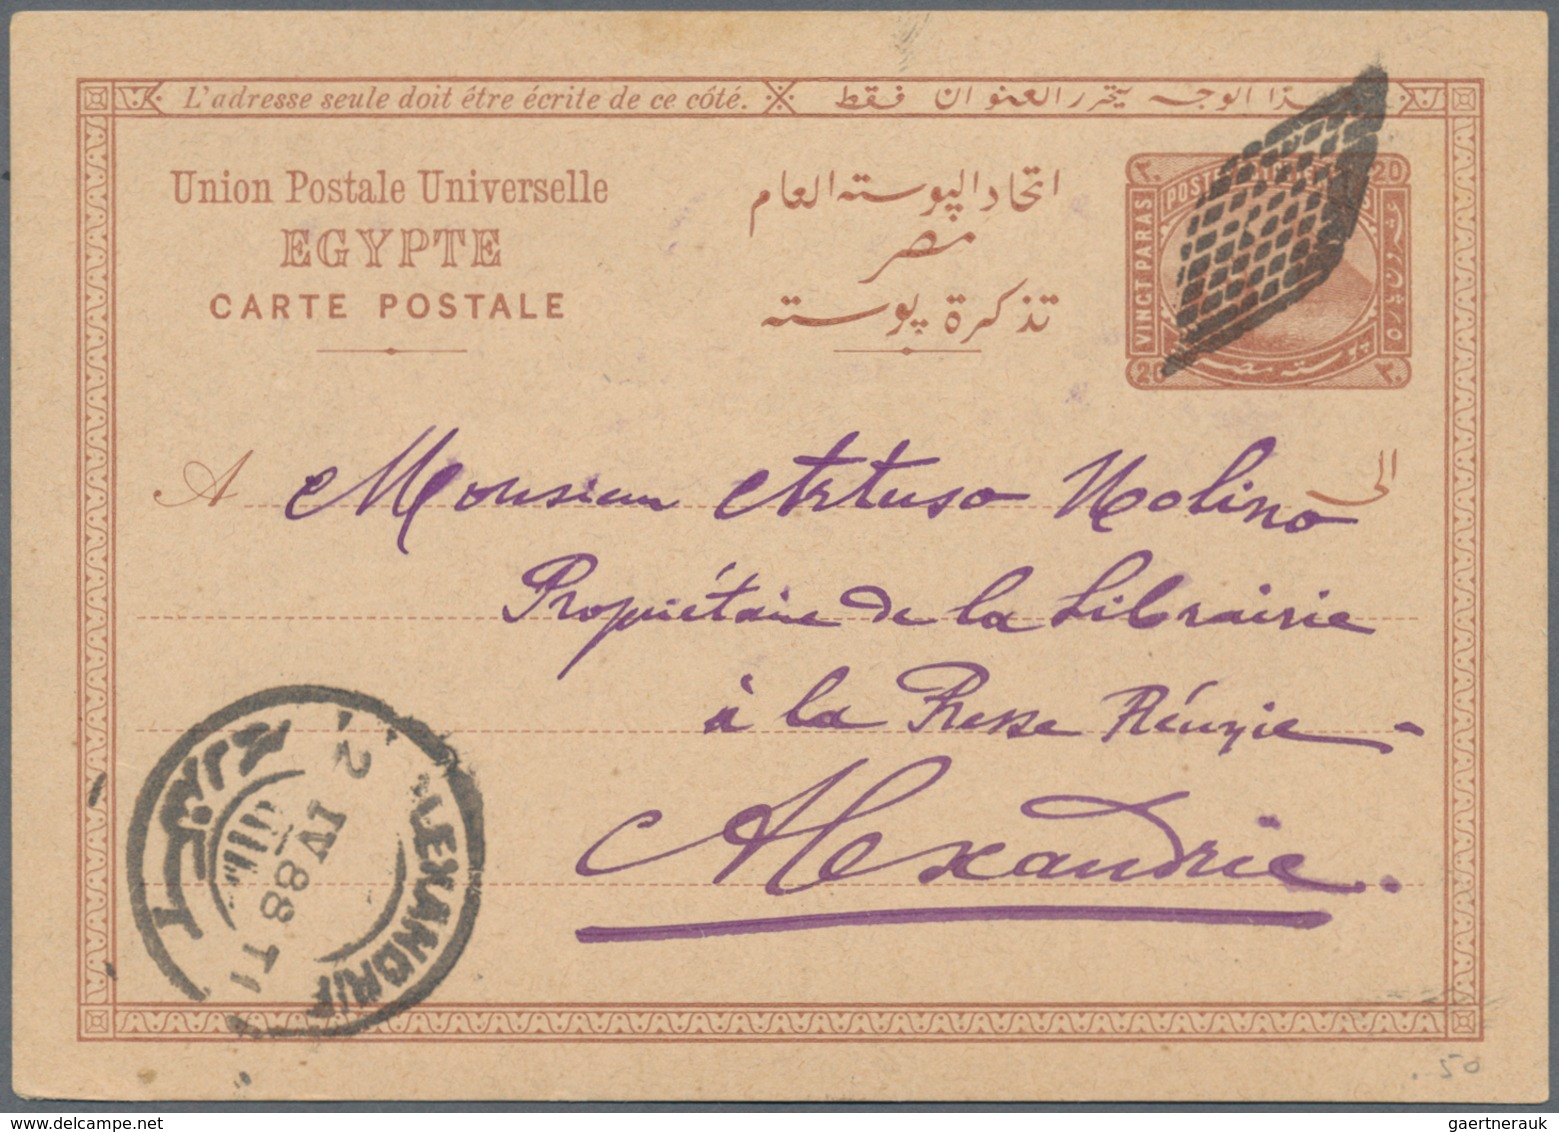 L'adresse seule doit être écrite de ce côté.
الوجه يتحرر العنوان فقط
Union Postale Universelle
EGYPTE
CARTE POSTALE
اتحاد البوسته العام
مصر
تذكرة بوسته
20
VINCT PARAS
20
٢٠
بوسته مصرية
A
الى
Monsieur Artuso Molino
Propriétaire de la Librairie
à la Presse
Alexandrie.
ALEXANDRIE
2 IV 88 T1
.50
gaertnerauk @ delcampe.net